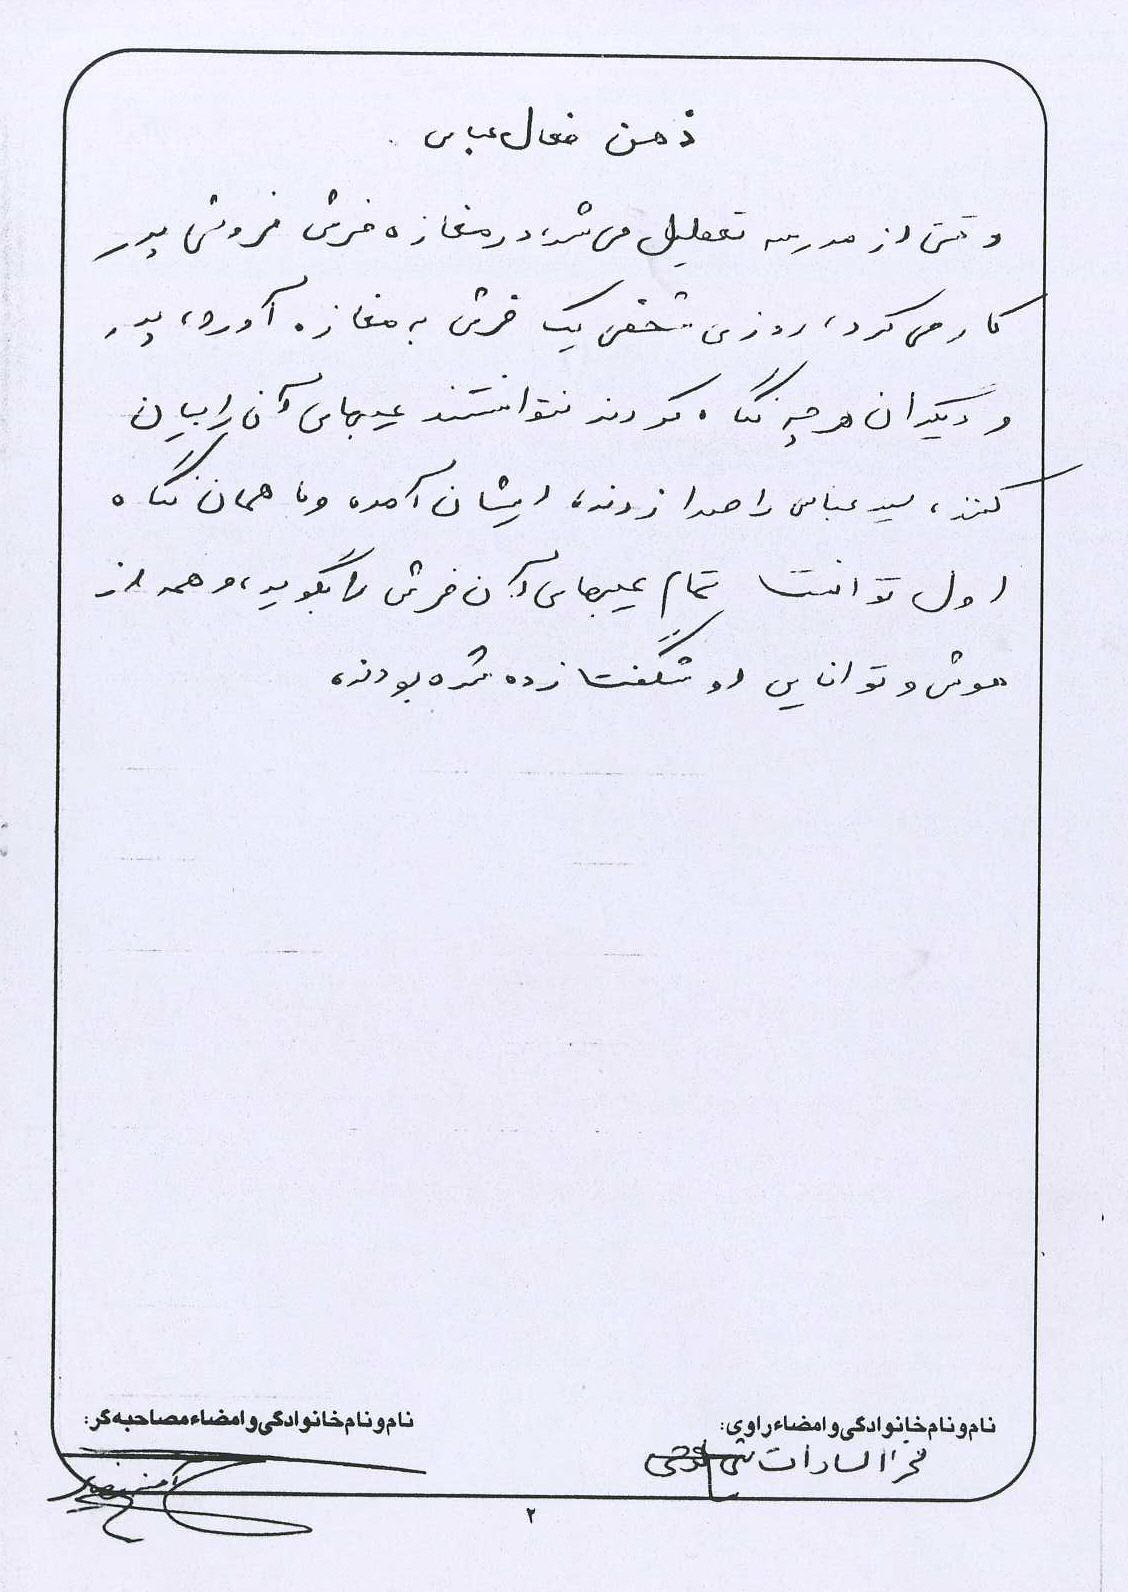 ذهن فعال عباس
وقتی از مدرسه تعطیل می‌شد، در مغازه فرش فروشی پدر
کار می‌کرد، روزی شخصی یک فرش به مغازه آورد، پدر
و دیگران هر چه نگاه کردند نتوانستند عیبهای آن را بیان
کنند، سید عباس را صدا زدند، ایشان آمده و با همان نگاه
اول توانست تمام عیبهای آن فرش را بگوید، و همه از
هوش و توانایی او شگفت زده شده بودند،
نام و نام خانوادگی و امضاء راوی:
نام و نام خانوادگی و امضاء مصاحبه گر:
فخر السادات
۲